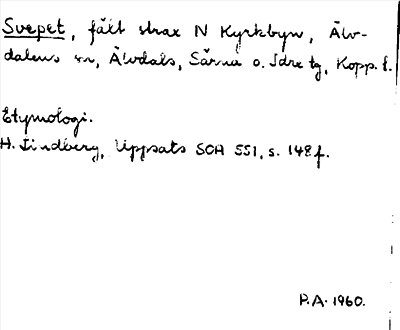 Svepet, fält strax N Kyrkbyn, Älv-
dalens sn, Älvdals, Särna o. Idre tg, Kopp. l.
Etymologi.
H. Lindberg, Uppsats SOA 551, s. 148 f.
P.A. 1960.